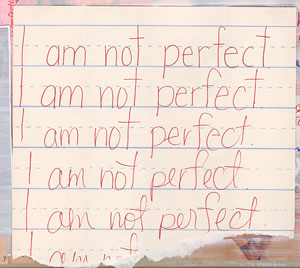 I am not perfect.
I am not perfect
I am not perfect.
I am not perfect.
I am not perfect
I am not